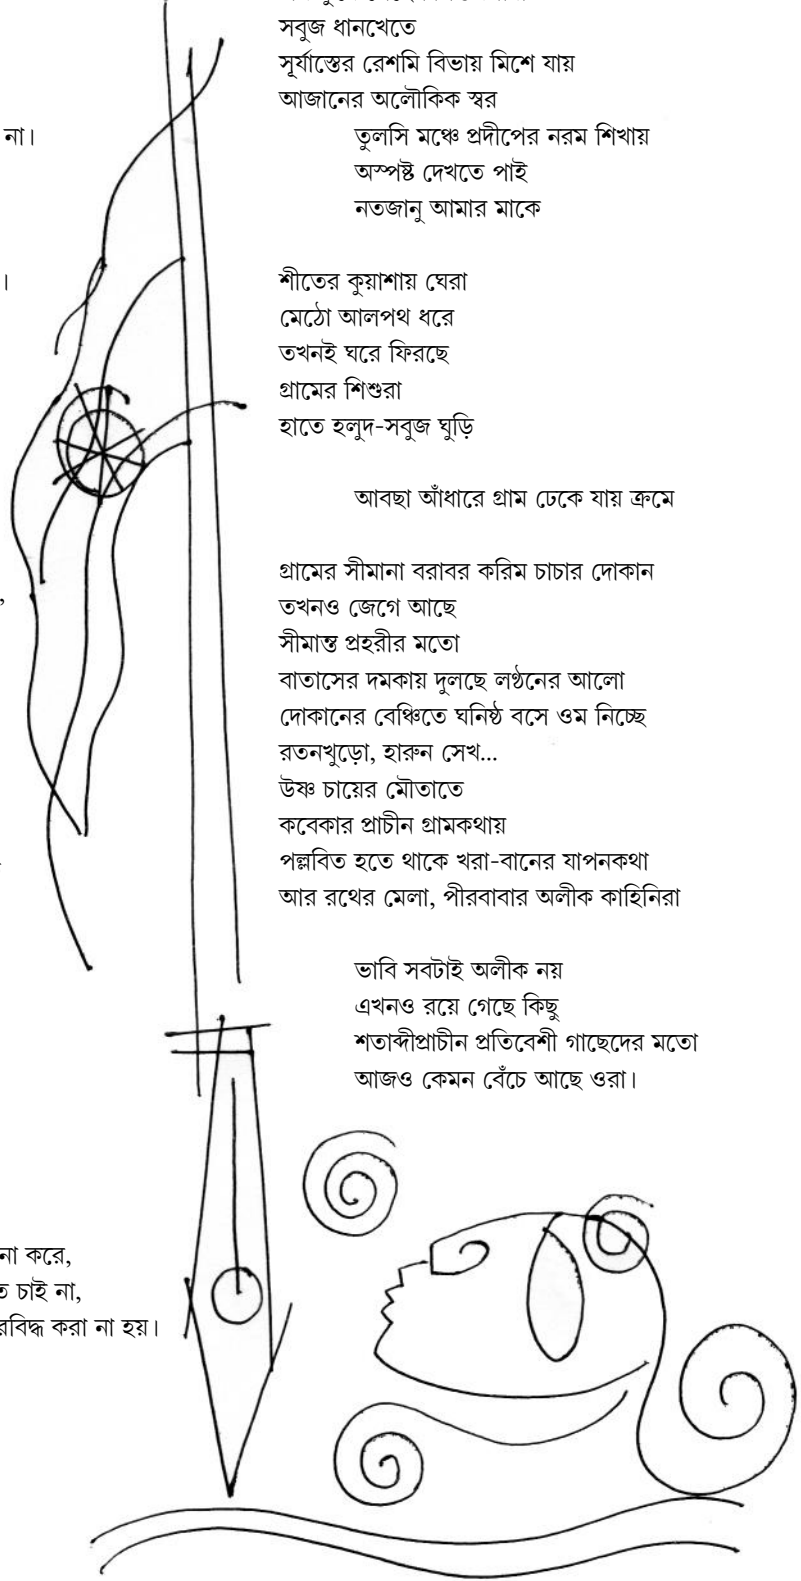 না।
।
,
না করে,
ত চাই না,
রবিদ্ধ করা না হয়।
সবুজ ধানখেতে
সূর্যাস্তের রেশমি বিভায় মিশে যায়
আজানের অলৌকিক স্বর
তুলসি মঞ্চে প্রদীপের নরম শিখায়
অস্পষ্ট দেখতে পাই
নতজানু আমার মাকে
শীতের কুয়াশায় ঘেরা
মেঠো আলপথ ধরে
তখনই ঘরে ফিরছে
গ্রামের শিশুরা
হাতে হলুদ-সবুজ ঘুড়ি
আবছা আঁধারে গ্রাম ঢেকে যায় ক্রমে
গ্রামের সীমানা বরাবর করিম চাচার দোকান
তখনও জেগে আছে
সীমান্ত প্রহরীর মতো
বাতাসের দমকায় দুলছে লণ্ঠনের আলো
দোকানের বেঞ্চিতে ঘনিষ্ঠ বসে ওম নিচ্ছে
রতনখুড়ো, হারুন সেখ...
উষ্ণ চায়ের মৌতাতে
কবেকার প্রাচীন গ্রামকথায়
পল্লবিত হতে থাকে খরা-বানের যাপনকথা
আর রথের মেলা, পীরবাবার অলীক কাহিনিরা
ভাবি সবটাই অলীক নয়
এখনও রয়ে গেছে কিছু
শতাব্দীপ্রাচীন প্রতিবেশী গাছেদের মতো
আজও কেমন বেঁচে আছে ওরা।